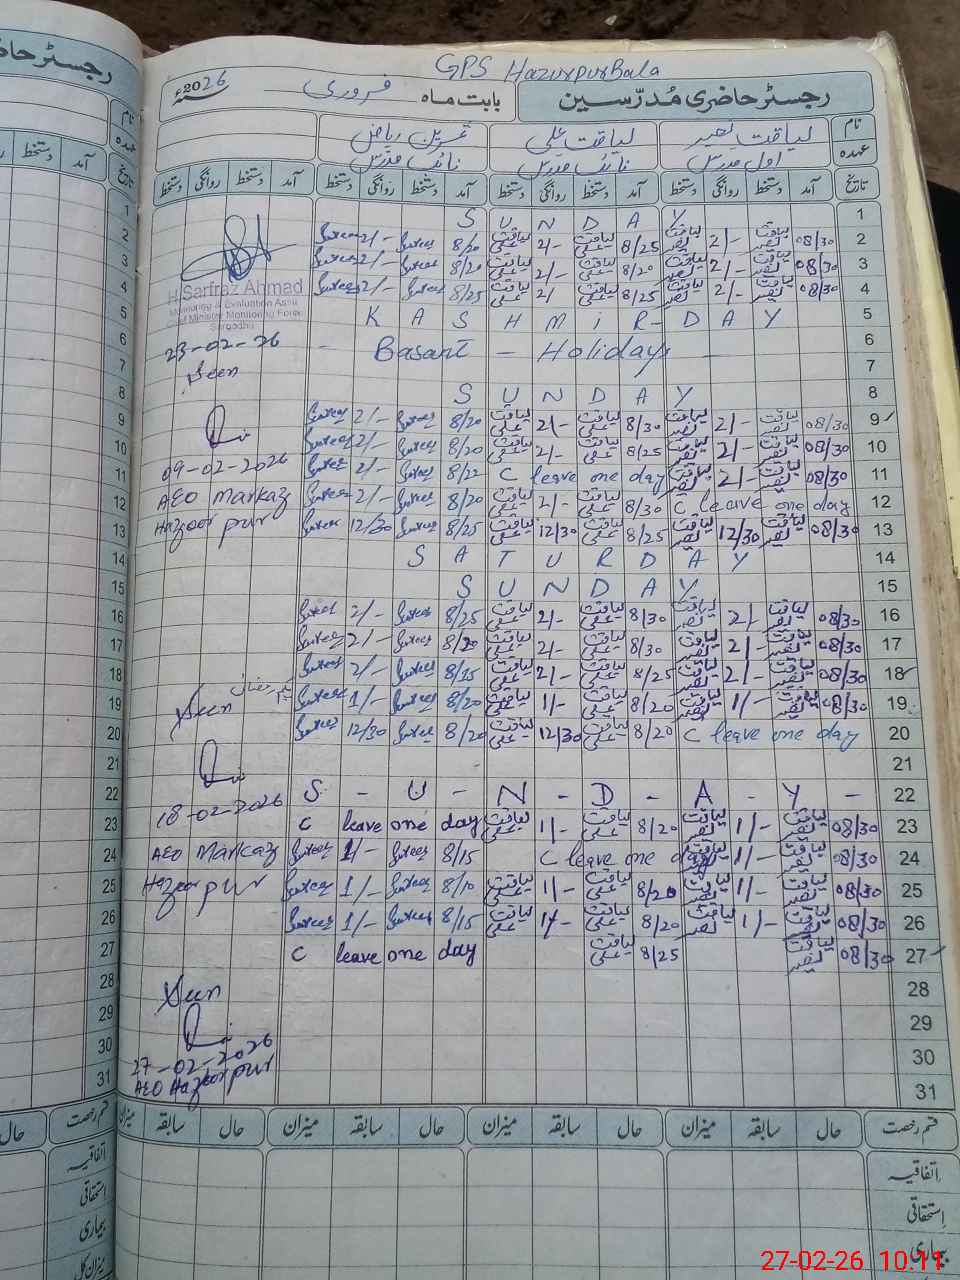 GPS HazurpurBala
رجسٹر حاضری مُدرّسین
بابت ماہ فروری
سنہ 2026ء
نام لیاقت نصیر لیاقت علی ثمرین ریاض
عہدہ اول مدرس نائب مدرس نائب مدرس
تاریخ آمد دستخط روانگی دستخط آمد دستخط روانگی دستخط آمد دستخط روانگی دستخط آمد دستخط روانگی دستخط
1 SUNDAY
2 08/30 لیاقت نصیر 2/- لیاقت نصیر 8/25 لیاقت علی 2/- لیاقت علی 8/20 2/-
3 08/30 لیاقت نصیر 2/- لیاقت نصیر 8/20 لیاقت علی 2/- لیاقت علی 8/20 2/-
4 08/30 لیاقت نصیر 2/- لیاقت نصیر 8/25 لیاقت علی 2/ لیاقت علی 8/25 2/-
5 KASHMiR-DAY
6 - Basant - Holiday -
7
8 SUNDAY
9 08/30 لیاقت نصیر 2/- لیاقت نصیر 8/30 لیاقت علی 2/- لیاقت علی 8/20 2/-
10 08/30 لیاقت نصیر 2/- لیاقت نصیر 8/25 لیاقت علی 2/- لیاقت علی 8/20 2/-
11 08/30 لیاقت نصیر 2/- لیاقت نصیر C leave one day 8/22 2/-
12 C leave one day 8/30 لیاقت علی 2/- لیاقت علی 8/20 2/-
13 08/30 لیاقت نصیر 12/30 لیاقت نصیر 8/25 لیاقت علی 12/30 لیاقت علی 8/25 12/30
14 SATURDAY
15 SUNDAY
16 08/30 لیاقت نصیر 2/- لیاقت نصیر 8/30 لیاقت علی 2/- لیاقت علی 8/25 2/-
17 08/30 لیاقت نصیر 2/- لیاقت نصیر 8/30 لیاقت علی 2/- لیاقت علی 8/20 2/-
18 08/30 لیاقت نصیر 2/- لیاقت نصیر 8/25 لیاقت علی 2/- لیاقت علی 8/15 2/-
19 08/30 لیاقت نصیر 1/- لیاقت نصیر 8/20 لیاقت علی 1/- لیاقت علی 8/20 1/-
20 C leave one day 8/20 لیاقت علی 12/30 لیاقت علی 8/20 12/30
21
22 S - U - N - D - A - Y -
23 08/30 لیاقت نصیر 1/- لیاقت نصیر 8/20 لیاقت علی 1/- لیاقت علی C leave one day
24 08/30 لیاقت نصیر 1/- C leave one day 8/15 1/-
25 08/30 لیاقت نصیر 1/- لیاقت نصیر 8/20 لیاقت علی 1/- لیاقت علی 8/10 1/-
26 08/30 لیاقت نصیر 1/- لیاقت نصیر 8/20 لیاقت علی 1/- لیاقت علی 8/15 1/-
27 08/30 لیاقت نصیر 8/25 لیاقت علی C leave one day
28
29
30
31
H.Sarfraz Ahmad
Monitoring & Evaluation Asstt
Chief Minister Monitoring Force
Sargodha
23-02-26
Seen
09-02-2026
AEO Markaz
Hazoor pur
Seen
18-02-2026
AEO Markaz
Hazoor pur
Seen
27-02-2026
AEO Hazoor pur
قسم رخصت حال سابقہ میزان حال سابقہ میزان حال سابقہ میزان حال سابقہ میزان
اِتفاقیہ
اِستحقاقی
بیماری
رجسٹر حاضری
نام
عہدہ
تاریخ آمد دستخط روانگی دستخط
1
2
3
4
5
6
7
8
9
10
11
12
13
14
15
16
17
18
19
20
21
22
23
24
25
26
27
28
29
30
31
قسم رخصت حال
اتفاقیہ
استحقاقی
بیماری
میزان کل
27-02-26 10:11